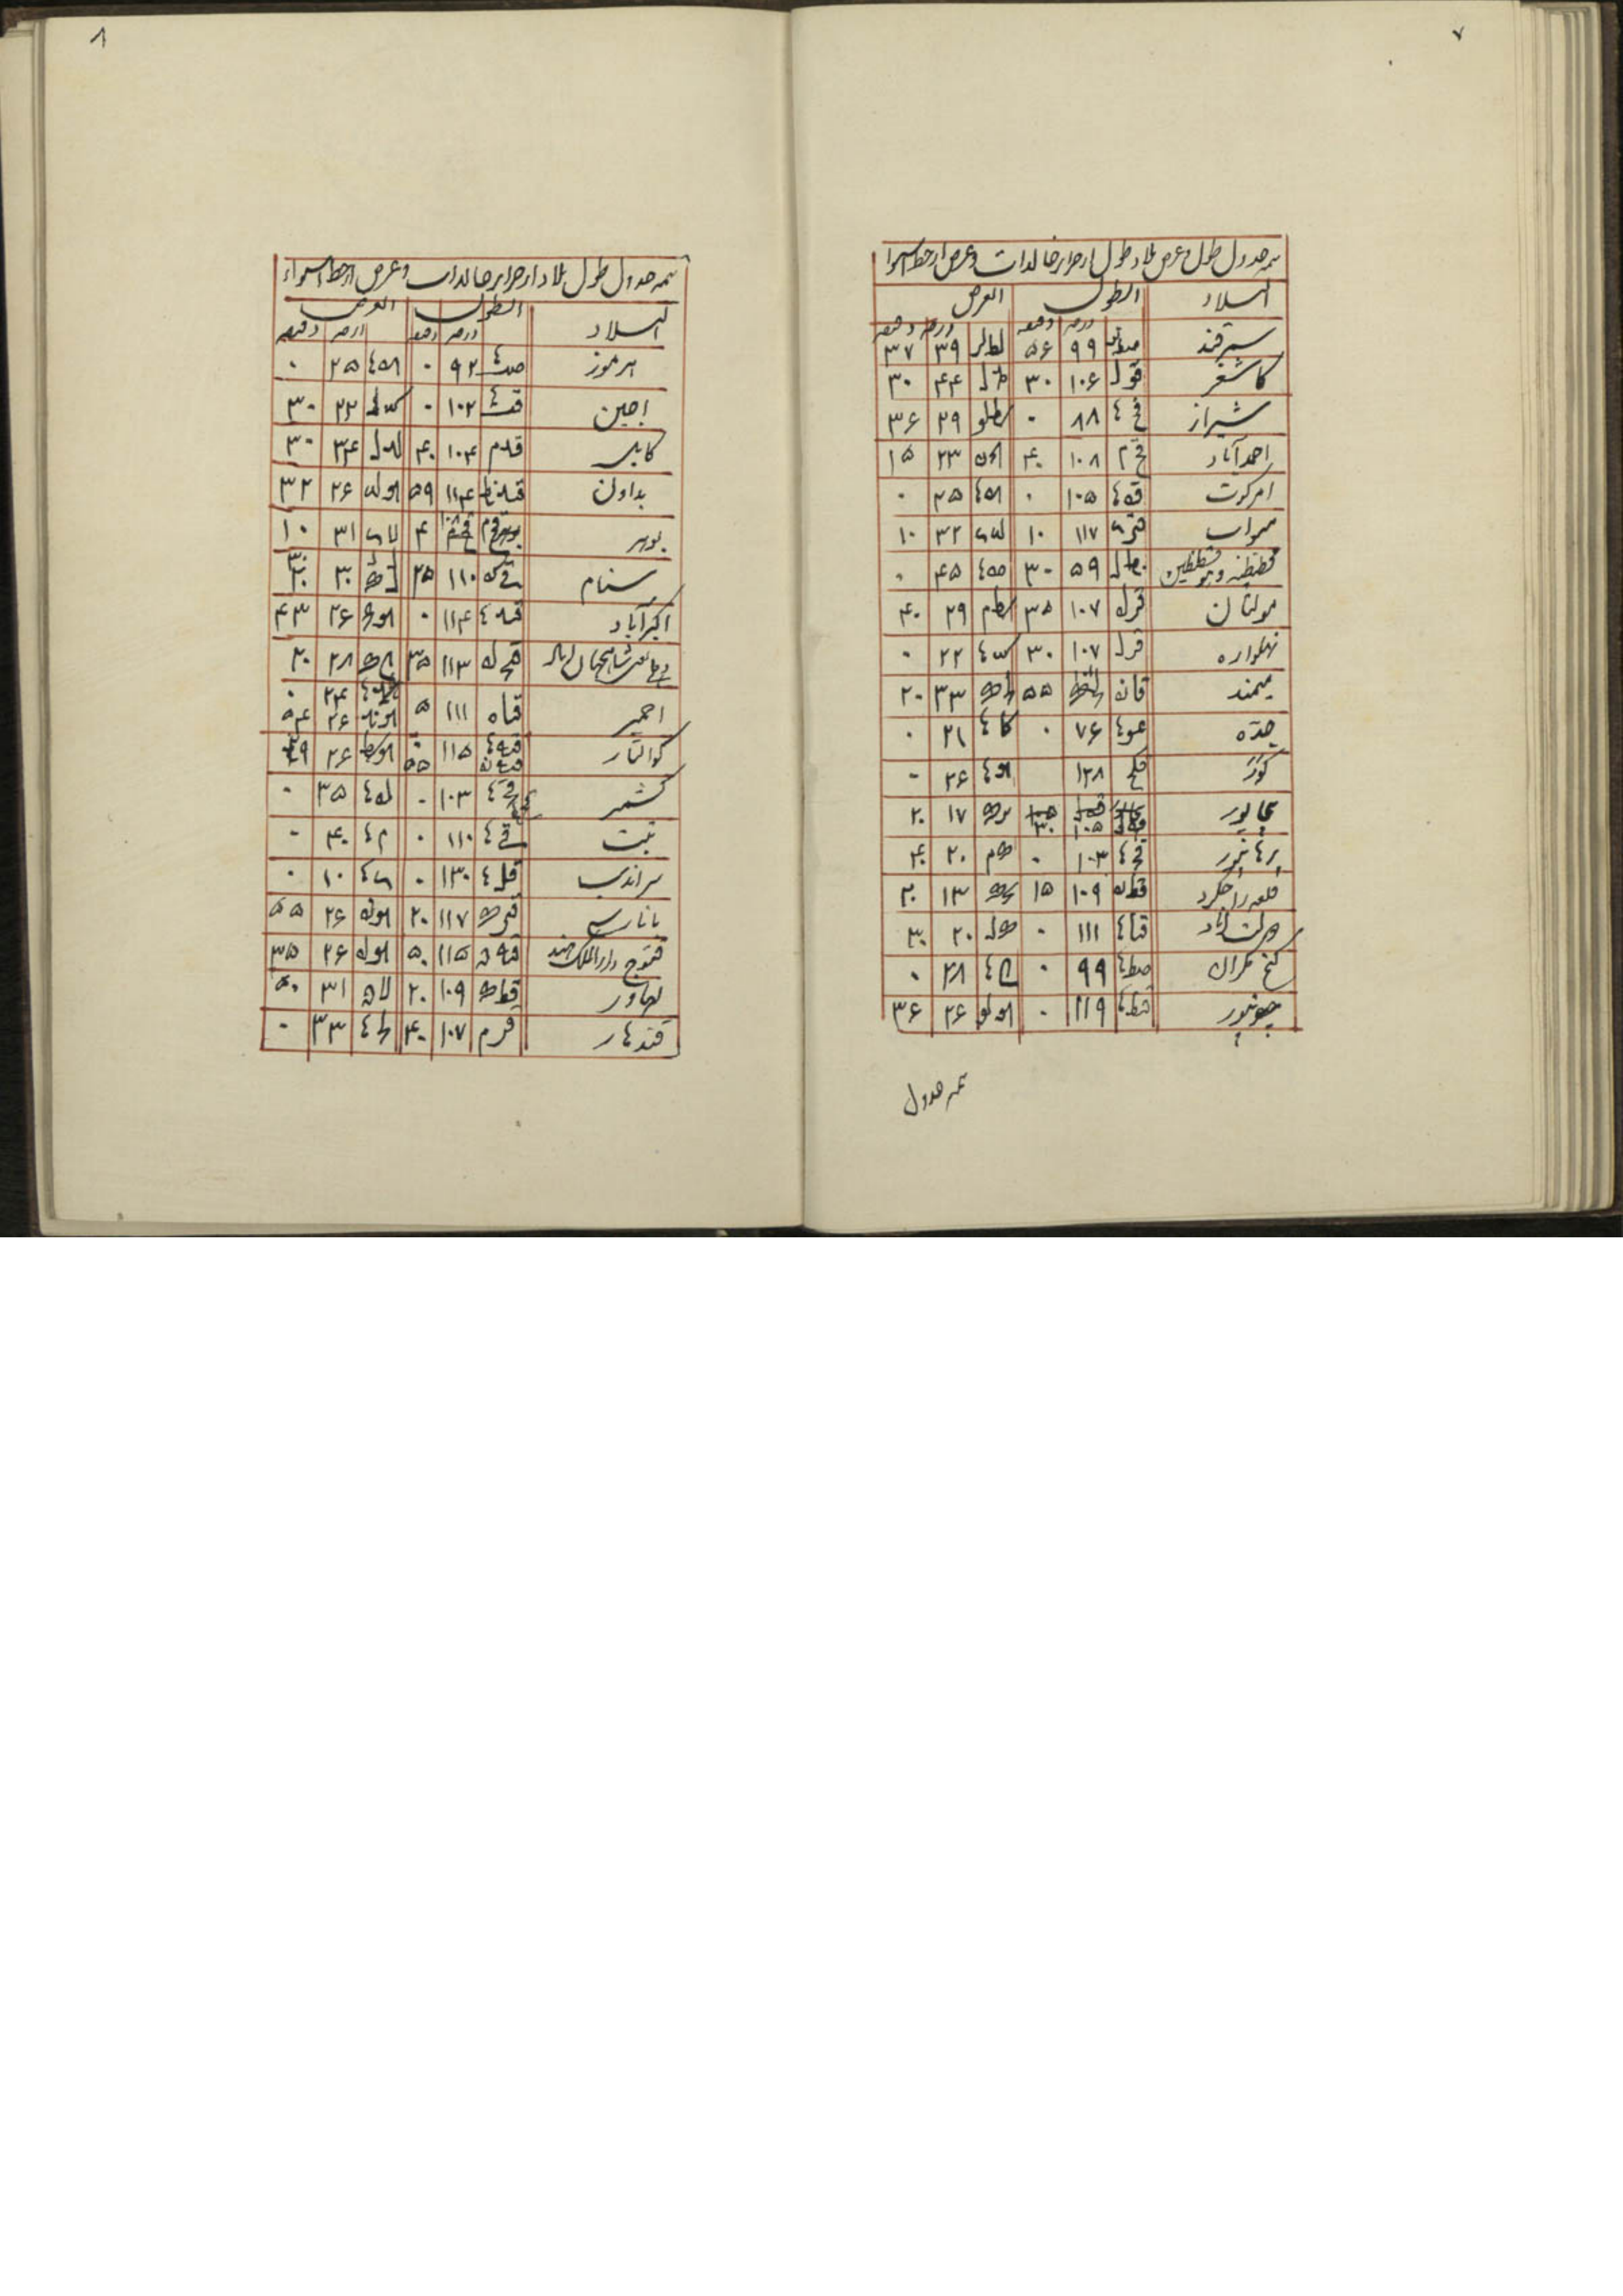 ۷
تتمه جدول طول و عرض بلاد طول از جزایر خالدات و عرض از خط استوا
البلاد الطول العرض
درجه دقیقه درجه دقیقه
سمرقند ۹۹ ۵۶ لط لر ۳۹ ۳۷
کاشغر قول ۱۰۶ ۳۰ مد ل ۴۴ ۳۰
شیراز فح ۸۸ ۰ کط لو ۲۹ ۳۶
احمدآباد قح م ۱۰۸ ۴۰ ۲۳ ۱۵
امرکوت قه ۱۰۵ ۰ که ۲۵ ۰
۱۱۷ ۱۰ لب ی ۳۲ ۱۰
نط ل ۵۹ ۳۰ مه ۴۵ ۰
مولتان قز له ۱۰۷ ۳۵ کط م ۲۹ ۴۰
نهلواره قز ل ۱۰۷ ۳۰ کب ۲۲ ۰
میمند قا نه ۵۵ لج ک ۳۳ ۲۰
جده عو ۷۶ ۰ کا ۲۱ ۰
کور قکح ۱۲۸ کو ۲۶ ۰
بیجاپور ۱۰۵ ۳۰ یز ک ۱۷ ۲۰
برهانپور قج ۱۰۳ ۰ ک م ۲۰ ۴۰
قلعه قط یه ۱۰۹ ۱۵ یج ک ۱۳ ۲۰
دولت آباد قیا ۱۱۱ ۰ ک ل ۲۰ ۳۰
کیج مکران صط ۹۹ ۰ کح ۲۸ ۰
جونپور قیط ۱۱۹ ۰ کو لو ۲۶ ۳۶
تتمه جدول
۸
تتمه جدول طول بلاد از جزایر خالدات و عرض از خط استواء
البلاد الطول العرض
درجه دقیقه درجه دقیقه
هرموز صب ۹۲ ۰ که ۲۵ ۰
اجین قب ۱۰۲ ۰ کب ل ۲۲ ۳۰
کابل قد م ۱۰۴ ۴۰ لد ل ۳۴ ۳۰
بداون قید نط ۱۱۴ ۵۹ کو لب ۲۶ ۳۲
۴ لا ی ۳۱ ۱۰
سنام قی که ۱۱۰ ۲۵ ۳۰ ۳۰
اکبرآباد قید ۱۱۴ ۰ کو مج ۲۶ ۴۳
شاهجهان آباد قیج له ۱۱۳ ۳۵ کح ک ۲۸ ۲۰
اجمیر قیا ه ۱۱۱ ۵ ۲۴ ۰ کو ند ۲۶ ۵۴
کوالیار قیه ۱۱۵ ۰ ۵۵ کو کط ۲۶ ۲۹
کشمیر قج ۱۰۳ ۰ له ۳۵ ۰
تبت قی ۱۱۰ ۰ م ۴۰ ۰
سراندیب قل ۱۳۰ ۰ ی ۱۰ ۰
بانارس قیز ک ۱۱۷ ۲۰ کو نه ۲۶ ۵۵
قنوج دارالملک هند قیه ن ۱۱۵ ۵۰ کو له ۲۶ ۳۵
لهاور قط ک ۱۰۹ ۲۰ لا ن ۳۱ ۵۰
قندهار قز م ۱۰۷ ۴۰ لج ۳۳ ۰